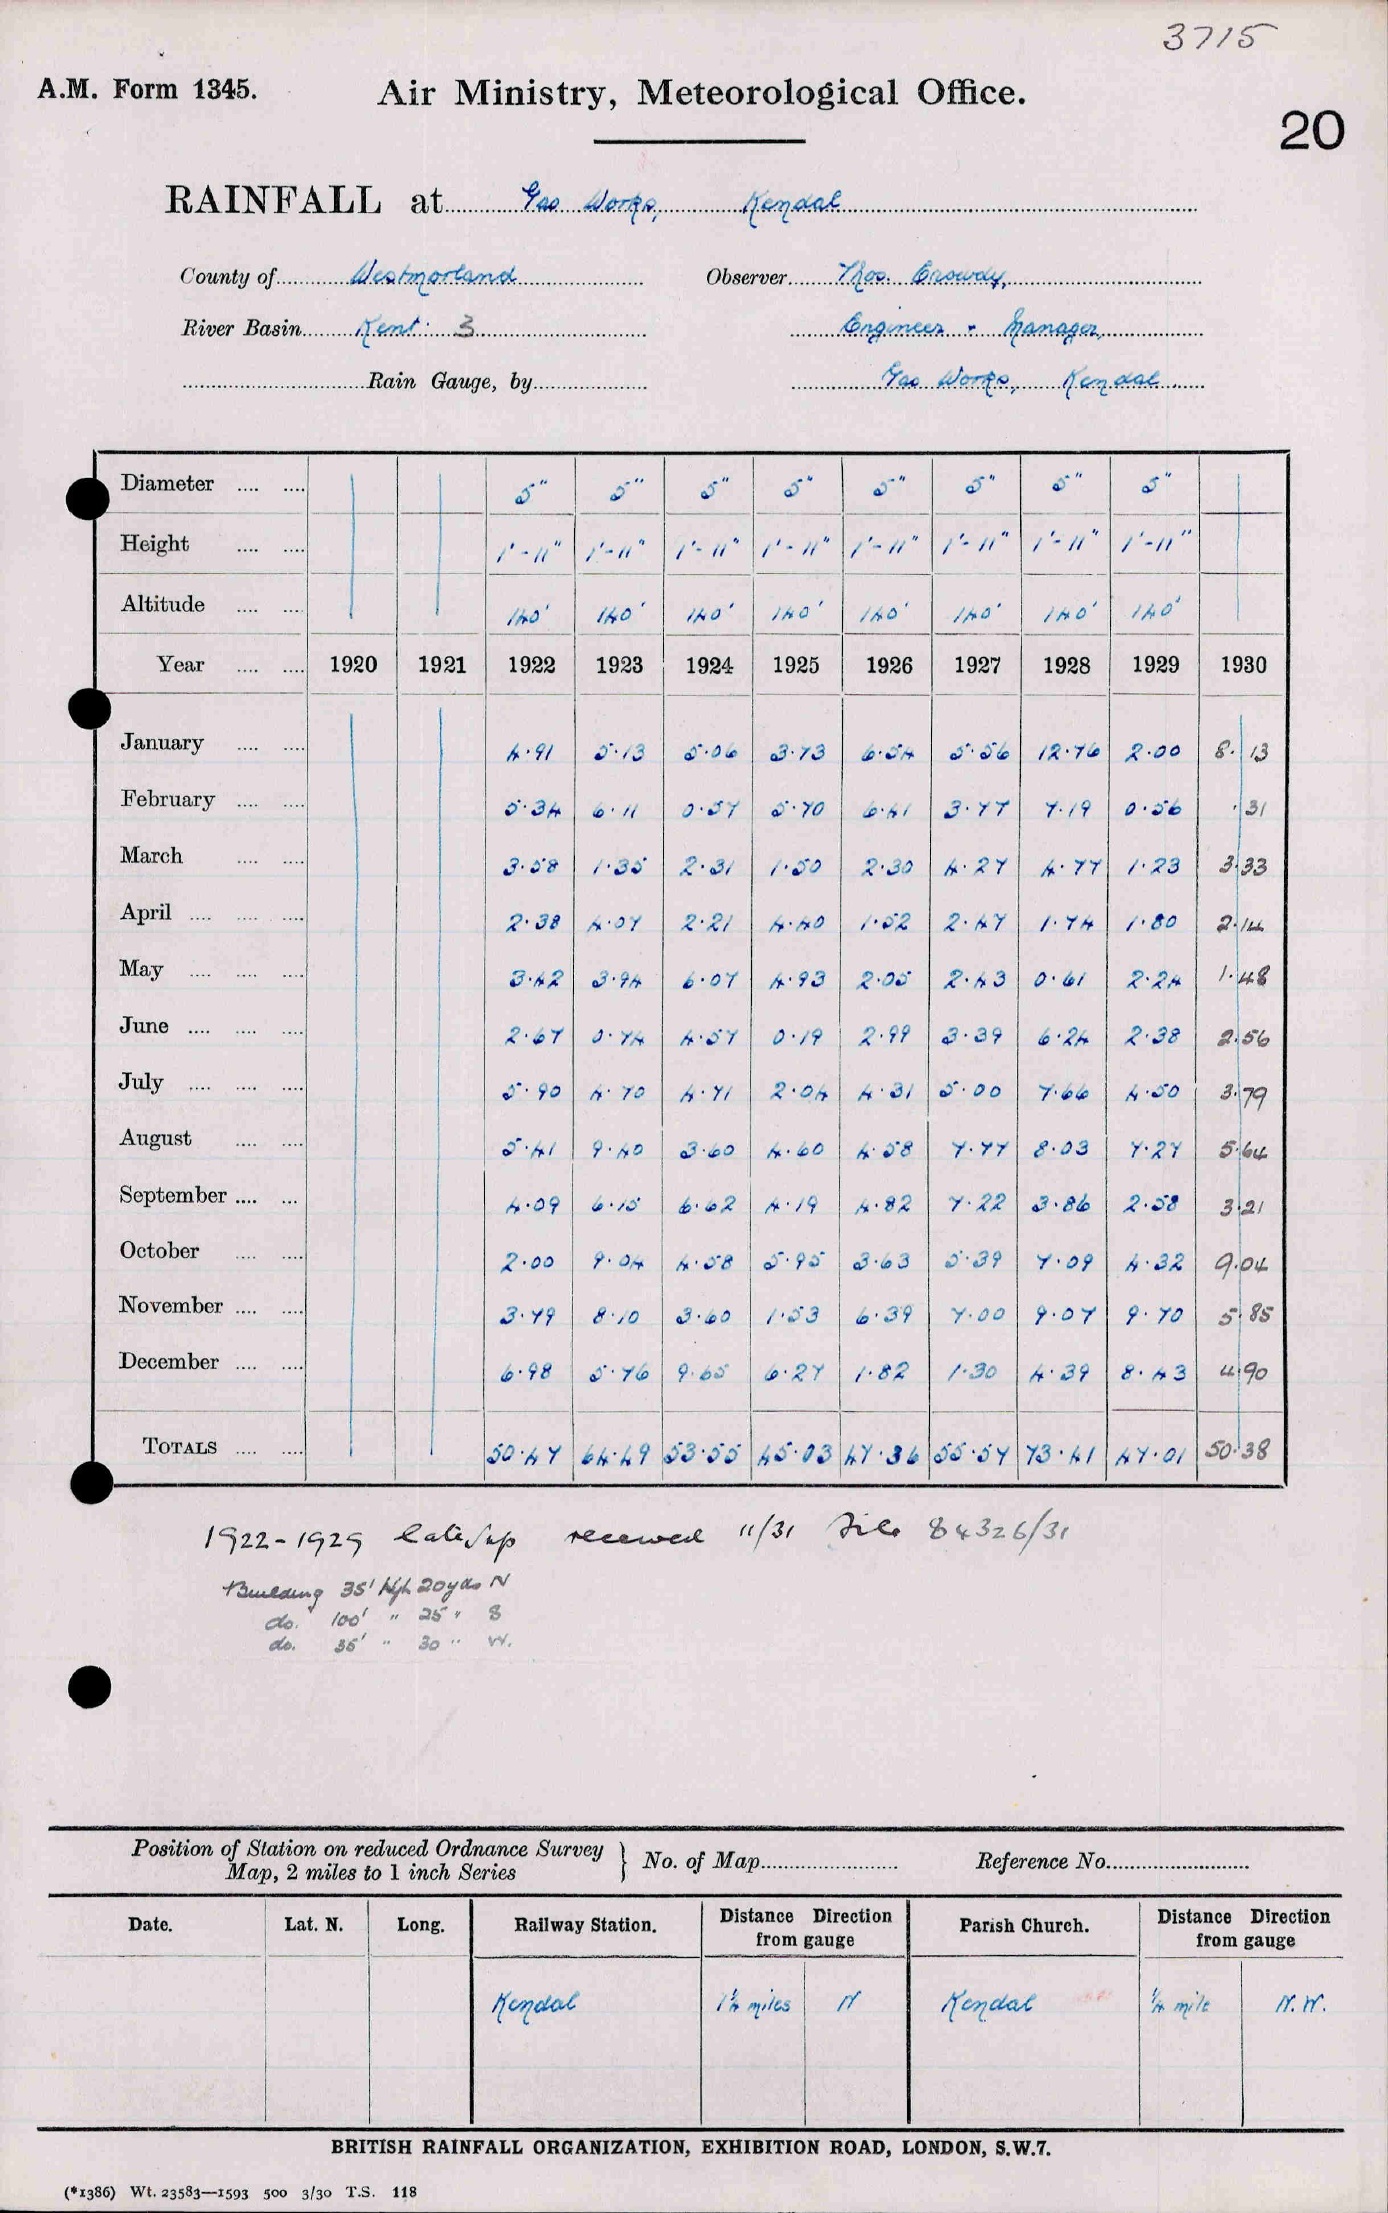 3715
A.M. Form 1345.
Air Ministry, Meteorological Office.
20
RAINFALL at Gas Works, Kendal
County of Westmorland Observer Thos. Crowdy,
River Basin Kent 3 Engineer & Manager,
Rain Gauge, by Gas Works, Kendal
Diameter 5" 5" 5" 5" 5" 5" 5" 5"
Height 1'-11" 1'-11" 1'-11" 1'-11" 1'-11" 1'-11" 1'-11" 1'-11"
Altitude 140' 140' 140' 140' 140' 140' 140' 140'
Year 1920 1921 1922 1923 1924 1925 1926 1927 1928 1929 1930
January 4·91 5·13 5·06 3·73 6·54 5·56 12·76 2·00 8·13
February 5·34 6·11 0·57 5·70 6·41 3·77 7·19 0·56 ·31
March 3·58 1·35 2·31 1·50 2·30 4·27 4·77 1·23 3·33
April 2·38 4·07 2·21 4·40 1·52 2·47 1·74 1·80 2·14
May 3·42 3·94 6·07 4·93 2·05 2·43 0·61 2·24 1·48
June 2·67 0·74 4·57 0·19 2·99 3·39 6·24 2·38 2·56
July 5·90 4·70 4·71 2·04 4·31 5·00 7·66 4·50 3·79
August 5·41 9·40 3·60 4·60 4·58 7·77 8·03 7·27 5·64
September 4·09 6·15 6·62 4·19 4·82 7·22 3·86 2·58 3·21
October 2·00 9·04 4·58 5·95 3·63 5·39 7·09 4·32 9·04
November 3·79 8·10 3·60 1·53 6·39 7·00 9·07 9·70 5·85
December 6·98 5·76 9·65 6·27 1·82 1·30 4·39 8·43 4·90
TOTALS 50·47 64·49 53·55 45·03 47·36 55·57 73·41 47·01 50·38
1922-1929 received 11/31 File 84326/31
Building 35' high 20yds N
do. 100' " 25 " S
do. 35' " 30 " W.
Position of Station on reduced Ordnance Survey
Map, 2 miles to 1 inch Series } No. of Map Reference No.
Date. Lat. N. Long. Railway Station. Distance Direction from gauge Parish Church. Distance Direction from gauge
Kendal 1¼ miles N Kendal ¼ mile N.W.
BRITISH RAINFALL ORGANIZATION, EXHIBITION ROAD, LONDON, S.W.7.
(*1386) Wt. 23583—1593 500 3/30 T.S. 118